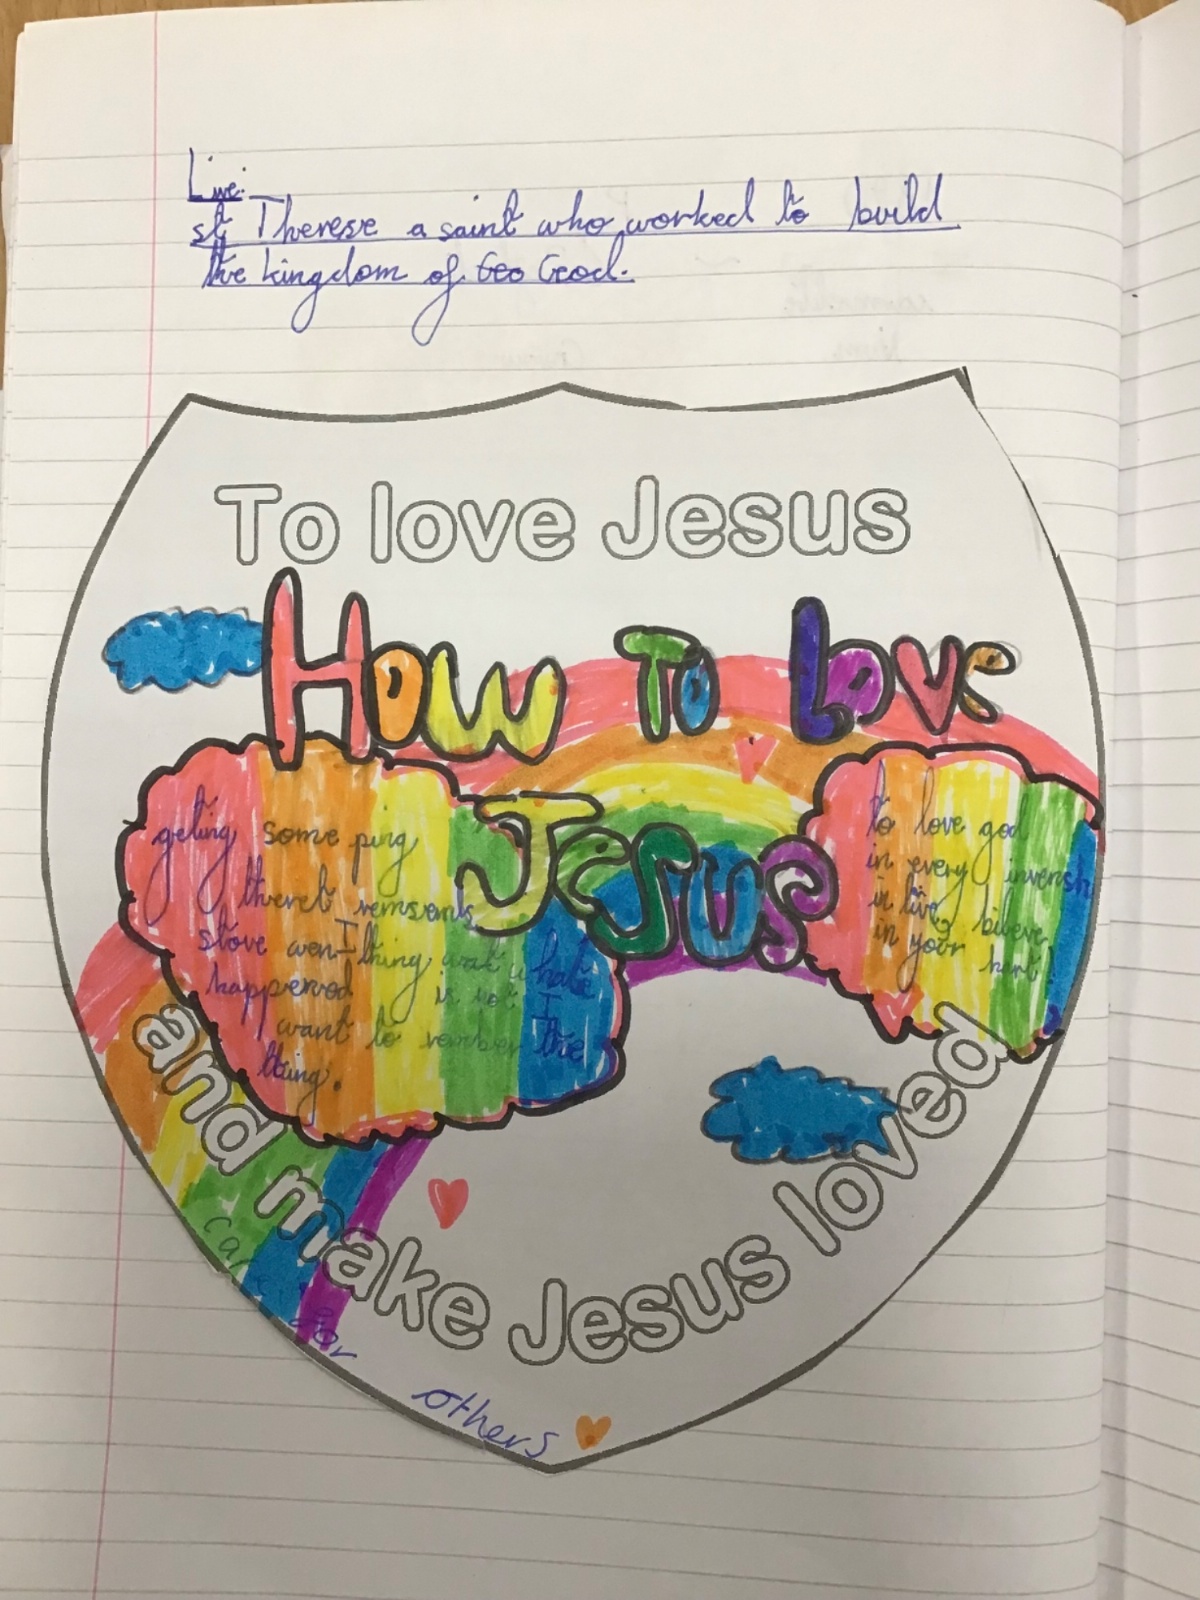 Liwe:
st Therese a saint who worked to build
the kingdom of Geo Geod.
To love Jesus
How To love
Jesus
geting some ping
theret remsants
stove wen I thing wat u hate
happened is not I
want to rember the
thing.
to love god
in every
in live bileve
in your hart
and make Jesus loved
care for
others